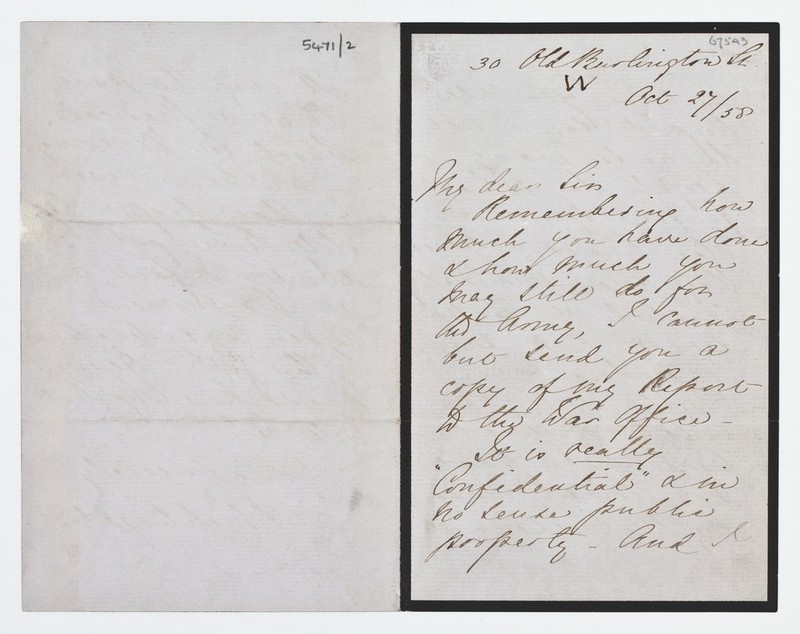 5471/2
67593
30 Old Burlington St
W
Oct 27/58
My dear Sir
Remembering how
much you have done
& how much you
may still do for
the Army, I cannot
but send you a
copy of my Report
to the War Office -
It is really
"Confidential" & in
no sense public
property - And I